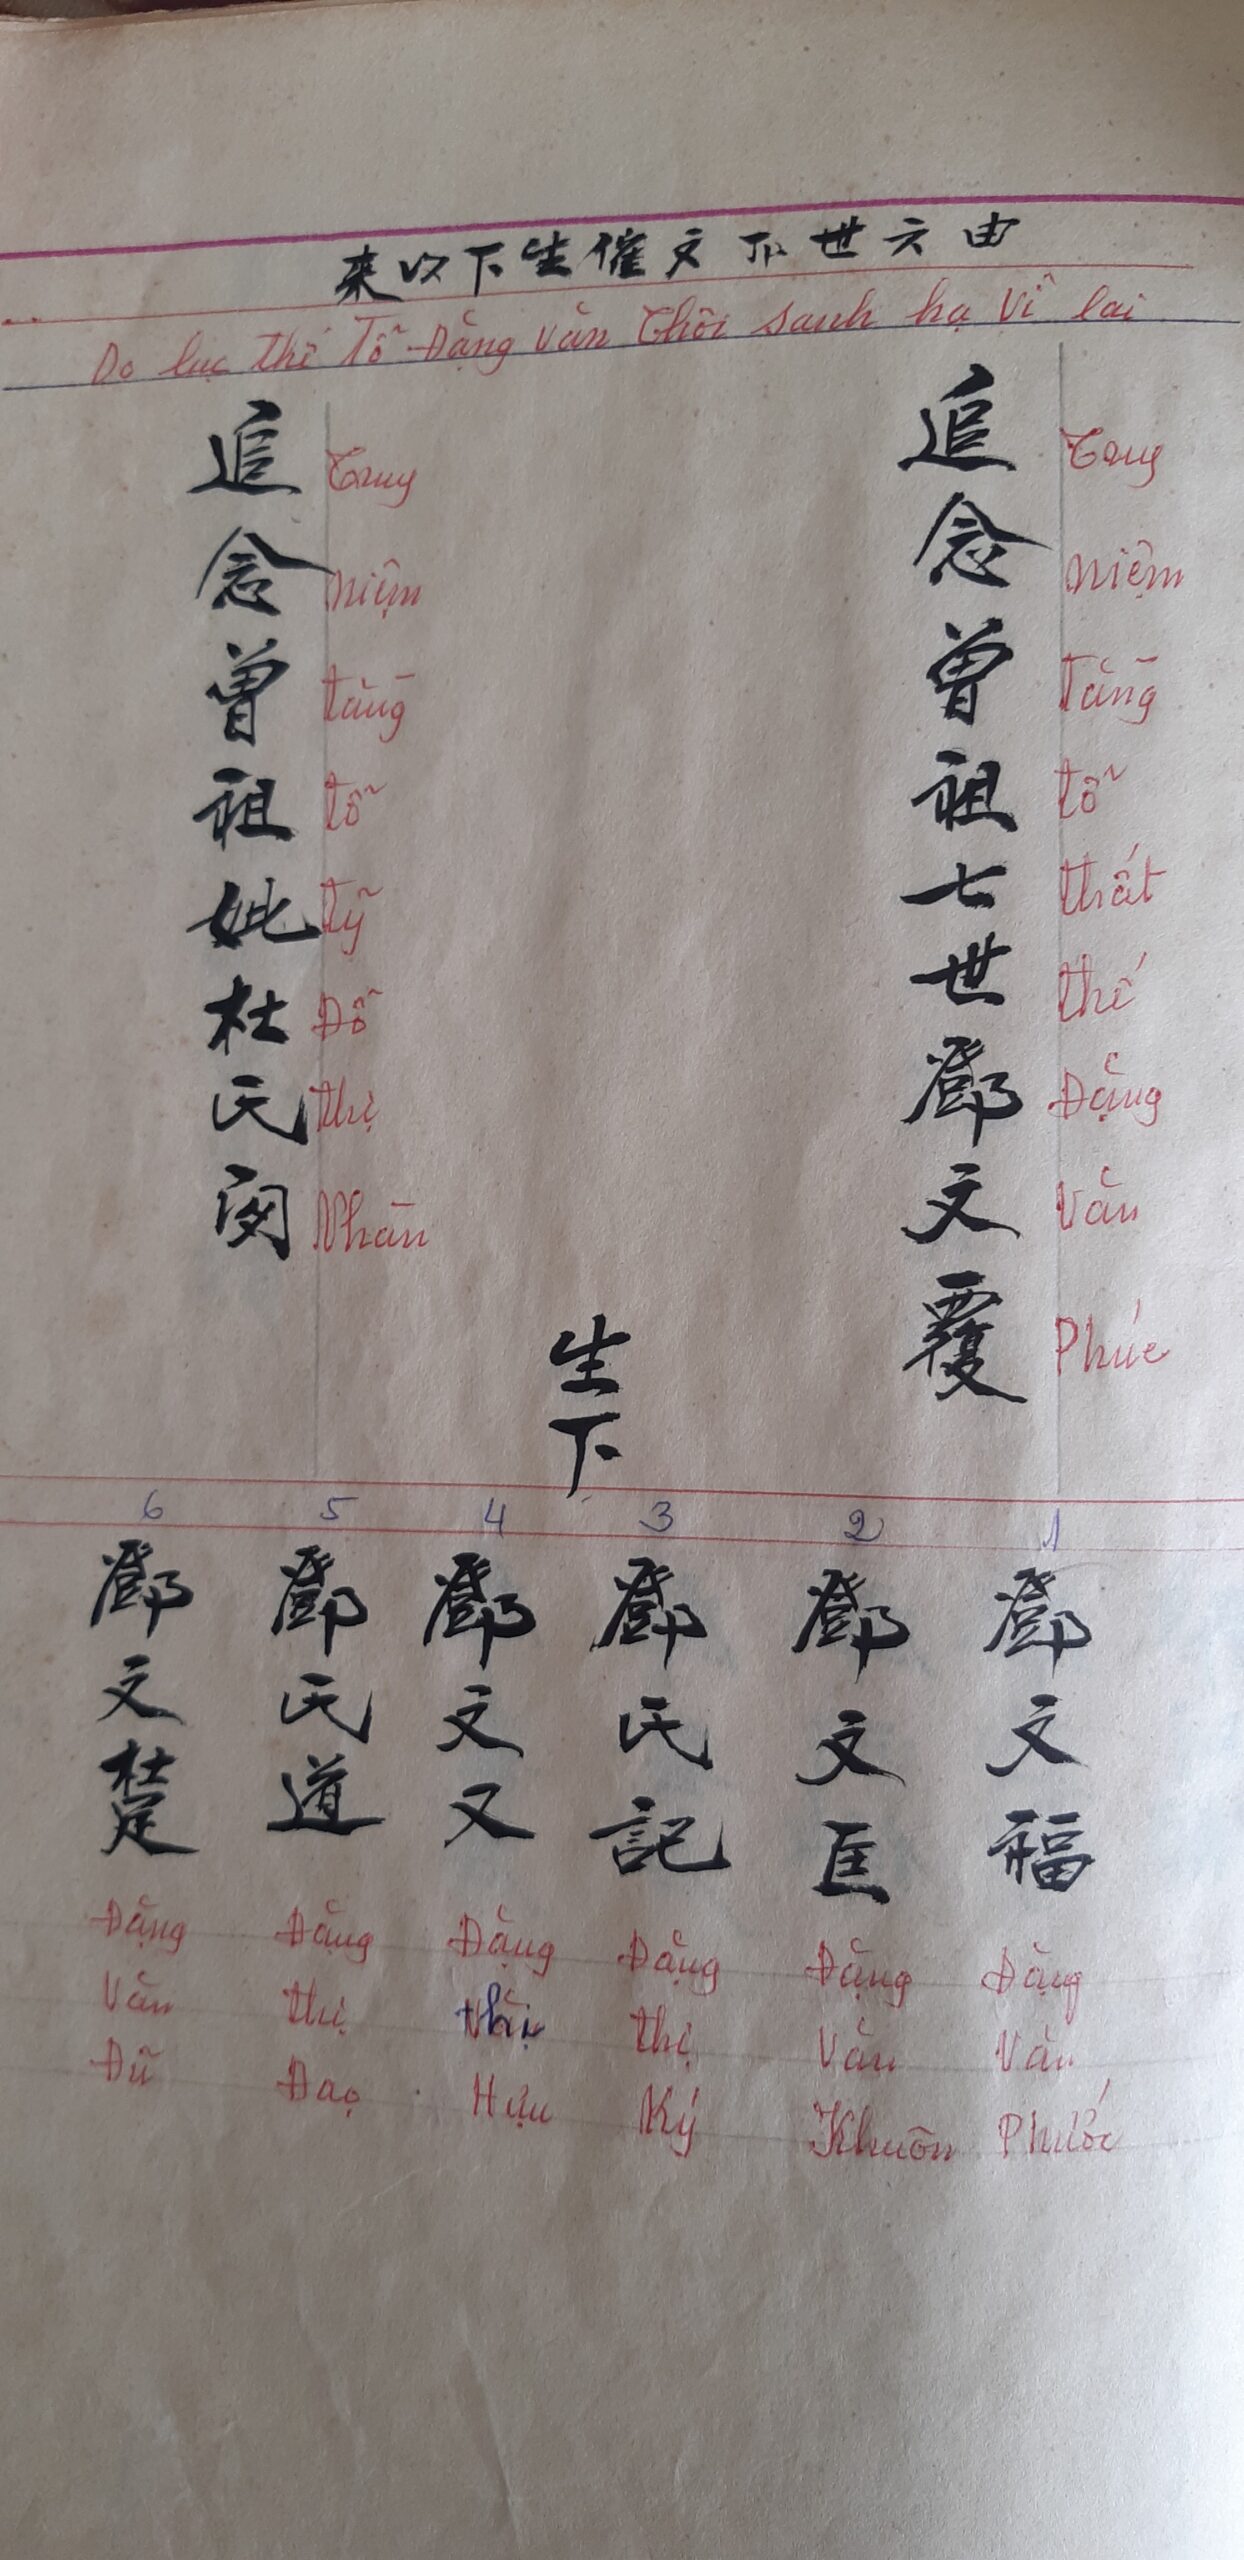 由六世祖文催生下以來
Do lục thế Tổ Đặng Văn Thôi sanh hạ Vĩ lai
追念曾祖七世鄧文覆
Truy niệm Tằng tổ thất thế Đặng Văn Phúc
追念曾祖妣杜氏
Truy niệm tằng tổ tỷ Đỗ thị Nhàn
生下
1
2
3
4
5
6
鄧文福
鄧文匡
鄧氏記
鄧文又
鄧氏道
鄧文楚
Đặng Văn Phước
Đặng Văn Khuôn
Đặng thị Ký
Đặng thị Hựu
Đặng thị Đạo
Đặng Văn Đũ